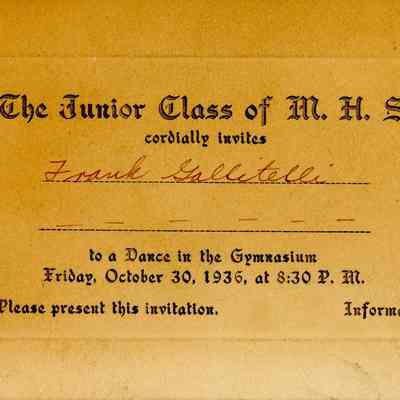 The Junior Class of M. H. S
cordially invites
Frank Gallitelli
to a Dance in the Gymnasium
Friday, October 30, 1936, at 8:30 P. M.
Please present this invitation. Informa